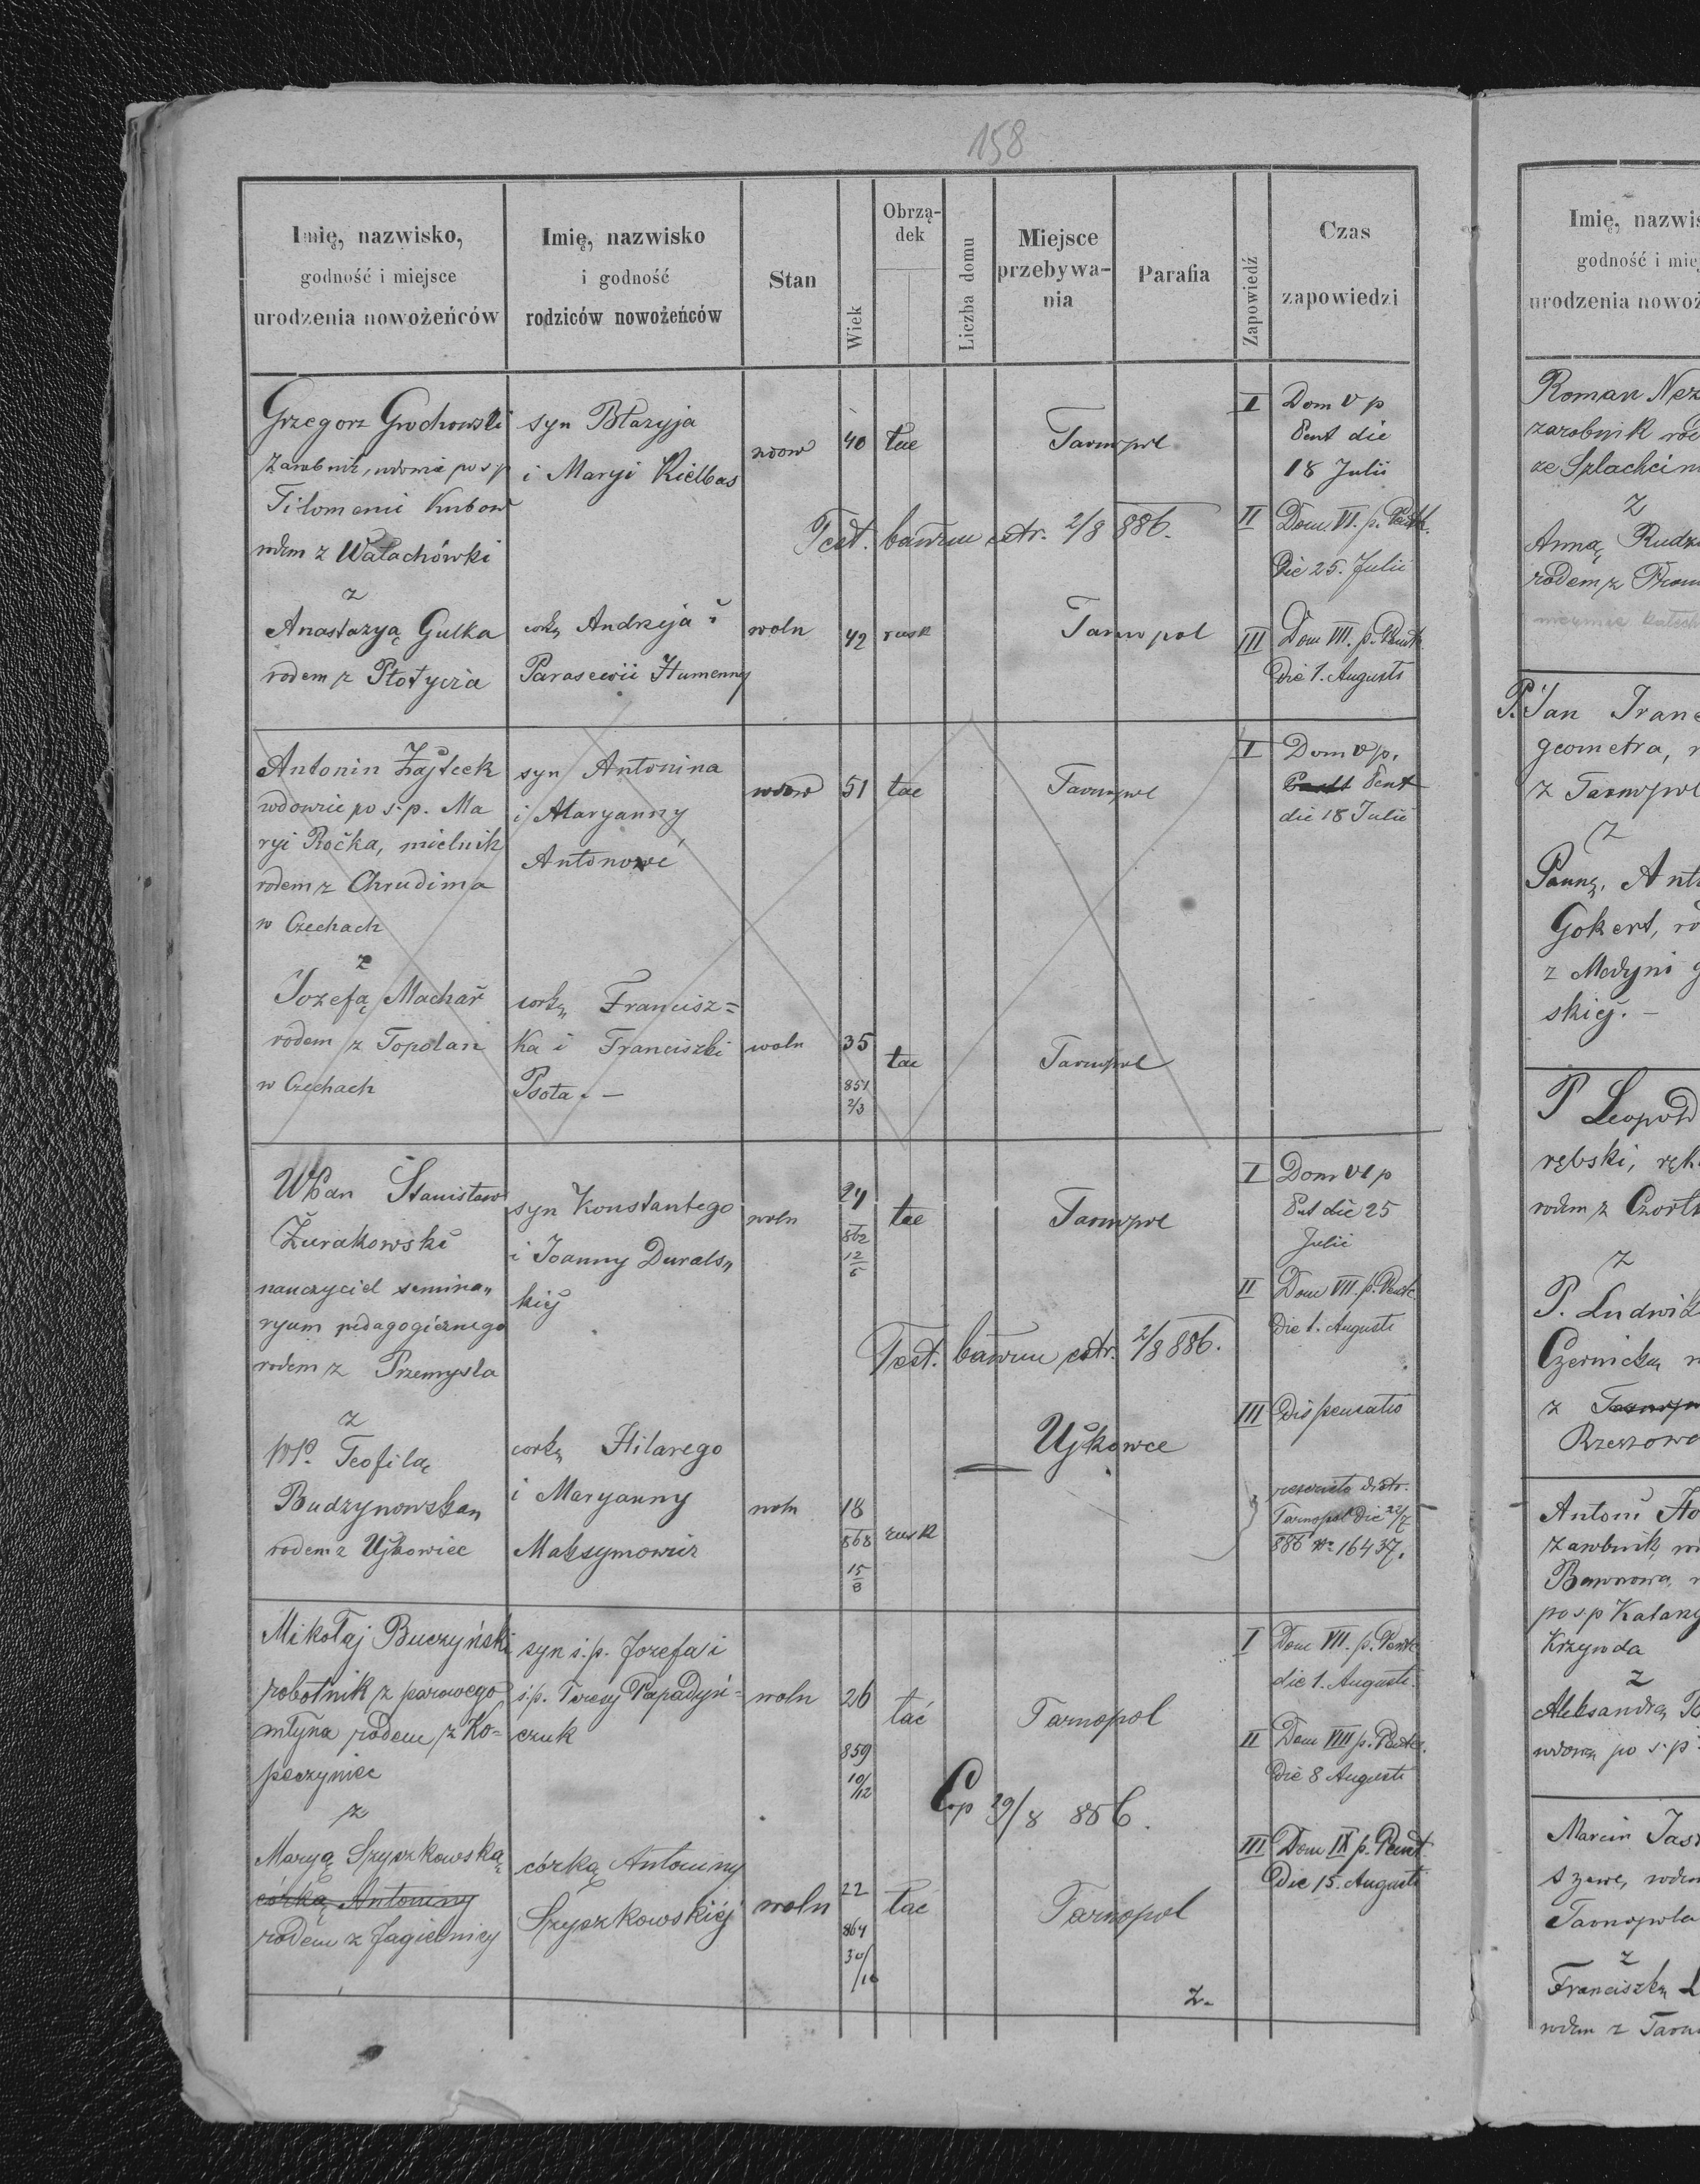 158
Imię, nazwisko,
godność i miejsce
urodzenia nowożeńców
Imię, nazwisko
i godność
rodziców nowożeńców
Stan
Wiek
Obrzą-
dek
Liczba domu
Miejsce
przebywa-
nia
Parafia
Zapowiedź
Czas
zapowiedzi
Grzegorz Grochowski
zarobnik, wdowiec po ś p
Filomenii Kubow
rodem z Wałachówki
z
Anastazyą Gulka
rodem z Płotycza
syn Błazyja
i Maryi Kiełbas
córką Andrzeja i
Parascevii Humenny
wdow
40
łac
Tarnopol
Test. bannu extr. 2/8 886.
woln
42
rusk
Tarnopol
I Dom V p
Pent die
18 Julii
II Dom. VI. p. Pent.
Die 25. Julii
III Dom VII. p. Pent.
Die 1. Augusti
Antonin Zajtcek
wdowiec po ś. p. Ma
ryi Ročka, mielnik
rodem z Chrudima
w Czechach
z
Jozefą Machař
rodem z Topolan
w Czechach
syn Antonina
i Maryanny
Antonowe
córką Francisz=
ka i Franciszki
Psota. —
wdow
51
łac
Tarnopol
woln
35
851
2/3
łac
Tarnopol
I Dom V p.
Pent
die 18 Julii
WPan Stanisław
Żurakowski
nauczyciel semina„
ryum pedagogicznego
rodem z Przemyśla
z
WP. Teofilą
Budzynowską
rodem z Ujkowiec
syn Konstantego
i Joanny Durals„
kiéj
córką Hilarego
i Maryanny
Maksymowicz
woln
24
862
12
5
łac
Tarnopol
Test. bannu extr. 2/8 886.
Ujkowce
woln
18
868
15
8
rusk
I Dom VI p
Pnt die 25
Julii
II Dom VII. p. Pent.
Die 1. Augusti
III Dispensatio
Tarnopol Die 22/7
886 No 16437.
Mikołaj Buczyński
robotnik z parowego
młyna rodem z Ko-
peczyniec
z
Maryą Szyszkowską
córką Antoniny
rodem z Jagielnicy
syn ś. p. Jozefa i
ś. p. Teresy Papadyń-
czuk
córką Antoniny
Szyszkowskiéj
woln
26
859
10/12
łać
Tarnopol
Cop 29/8 886.
woln
22
864
30/10
łać
Tarnopol
z.
I Dom VII. p. Pent.
die 1. Augusti.
II Dom VIII p. Pent.
Die 8 Augusti
III Dom IX p. Pent
Die 15. Augusti
Imię, nazwis
godność i mie
urodzenia nowoż
Roman Nez
zarobnik
ze Szlachcin
z
Anną Rudz
rodem z
P. Jan Franc
geometra,
z Tarnopol
z
Panną Ant
Gokert, ro
z Medyni g
skiéj. —
P Leopold
rębski, ręk
rodem z Czortk
z
P. Ludwik
Czernicką
z
Rzeszowa
Antoni
zarobnik
po ś p Katarzy
Krzywda
z
Aleksandrą
wdową po ś. p.
Marcin Jas
szewc, rodem
Tarnopola
z
Franciszką
rodem z Tarn